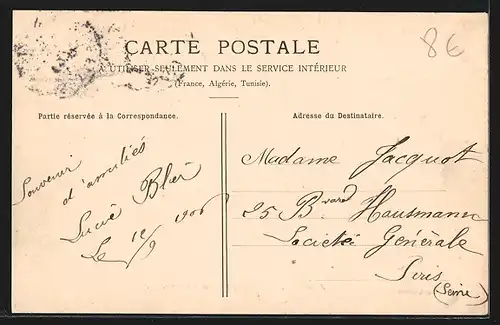 8€
CARTE POSTALE
A UTILISER SEULEMENT DANS LE SERVICE INTÉRIEUR
(France, Algérie, Tunisie).
Partie réservée à la Correspondance.
Adresse du Destinataire.
Souvenir
d'amitiés
Lucie Blier
Le 12/9 1906
Madame Jacquot
25 Bvard Hausmann
Societé Generale
Paris
(Seine)